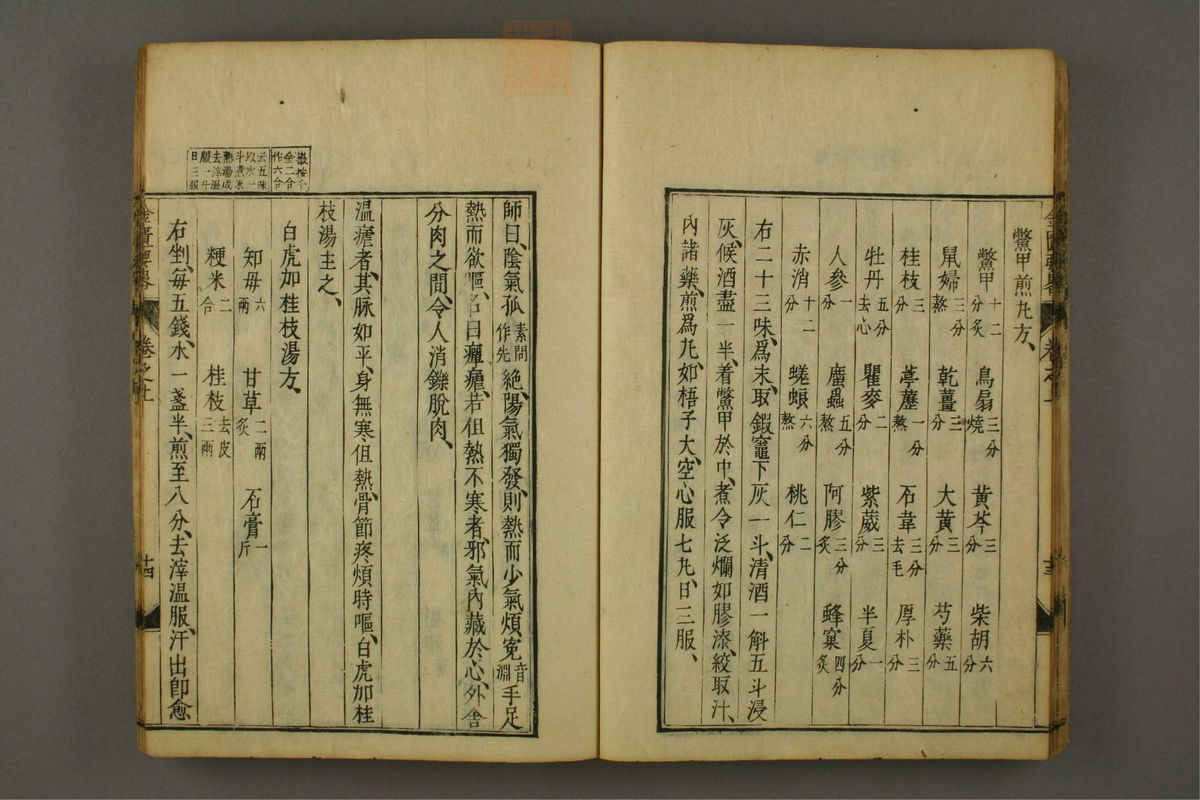 鱉甲煎丸方、
鱉甲十二分炙 烏扇三分燒 黃芩三分 柴胡六分
鼠婦三分熬 乾薑三分 大黃三分 芍藥五分
桂枝三分 葶藶一分熬 石韋三分去毛 厚朴三分
牡丹五分去心 瞿麥二分 紫葳三分 半夏一分
人參一分 䗪蟲五分熬 阿膠三分炙 蜂窠四分炙
赤消十二分 蜣蜋六分熬 桃仁二分
右二十三味、爲末、取鍜竈下灰一斗、清酒一斛五斗浸
灰、候酒盡一半、着鱉甲於中、煮令泛爛如膠漆、絞取汁、
內諸藥、煎爲丸、如梧子大、空心服七丸、日三服、
卷之上
十三
師曰、陰氣孤素問作先絕、陽氣獨發、則熱而少氣煩寃音淵手足
熱而欲嘔、名曰癉瘧、若但熱不寒者、邪氣內藏於心、外舍
分肉之間、令人消鑠脫肉、
溫瘧者、其脉如平、身無寒但熱、骨節疼煩、時嘔、白虎加桂
枝湯主之、
白虎加桂枝湯方、
知毋六兩 甘草二兩炙 石膏一斤
粳米二合 桂枝去皮三兩
右剉、每五錢、水一盞半、煎至八分、去滓溫服、汗出卽愈
徽按千
金二合
作六合
云五味
以水一
斗煮米
熟湯成
去滓溫
服一升
日三服
金匱要畧
卷之上
十四